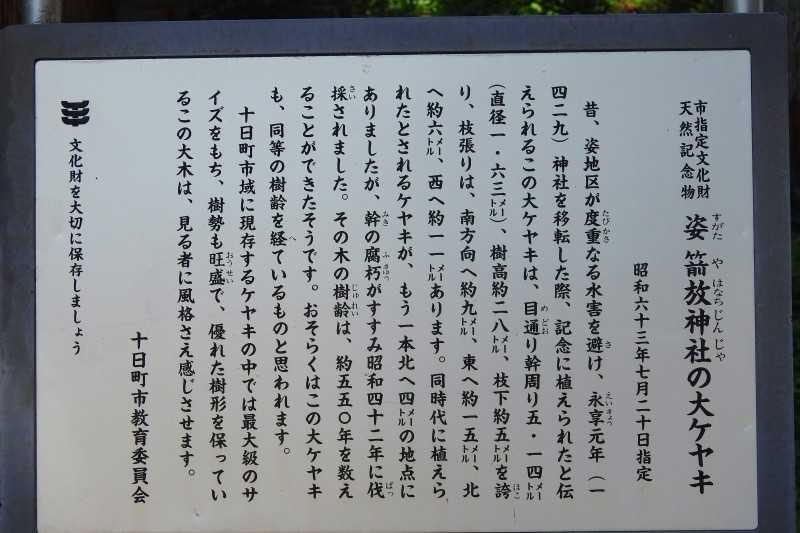 市指定文化財
天然記念物
姿箭放神社の大ケヤキ
すがた や はなちじんじゃ
昭和六十三年七月二十日指定
昔、姿地区が度重なる水害を避け、永享元年（一
たびかさ さ えいきょう
四二九）神社を移転した際、記念に植えられたと伝
えられるこの大ケヤキは、目通り幹周り五・一四メートル
め どお
（直径一・六三メートル）、樹高約二八メートル、枝下約五メートルを誇
ほこ
り、枝張りは、南方向へ約九メートル、東へ約一五メートル、北
へ約六メートル、西へ約一一メートルあります。同時代に植えら
れたとされるケヤキが、もう一本北へ四メートルの地点に
ありましたが、幹の腐朽がすすみ昭和四十二年に伐
みき ふ きゅう ばっ
採されました。その木の樹齢は、約五五〇年を数え
さい じゅれい
ることができたそうです。おそらくはこの大ケヤキ
も、同等の樹齢を経ているものと思われます。
へ
十日町市域に現存するケヤキの中では最大級のサ
イズをもち、樹勢も旺盛で、優れた樹形を保ってい
おうせい
るこの大木は、見る者に風格さえ感じさせます。
十日町市教育委員会
文化財を大切に保存しましょう